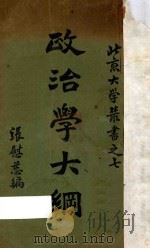 北京大學叢書之七
政治學大綱
張慰慈編
mtoou.info